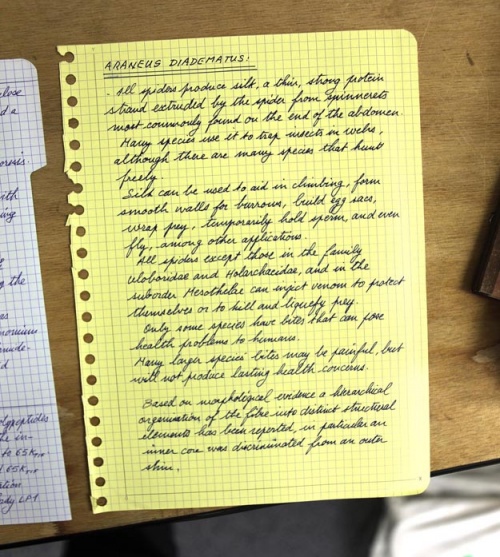 ARANEUS DIADEMATUS:
. All spiders produce silk, a thin, strong protein
strand extruded by the spider from spinnerets
most commonly found on the end of the abdomen.
Many species use it to trap insects in webs,
although there are many species that hunt
freely
Silk can be used to aid in climbing, form
smooth walls for burrows, build egg sacs,
wrap prey, temporarily hold sperm, and even
fly, among other applications.
All spiders except those in the family
Uloboridae and Holarchaeidae, and in the
suborder Mesothelae can inject venom to protect
themselves or to kill and liquefy prey.
Only some species have bites that can pose
health problems to humans.
Many larger species' bites may be painful, but
will not produce lasting health concerns.
Based on morphological evidence a hierarchical
organisation of the fibre into distinct structural
elements has been reported, in particular an
inner core was discriminated from an outer
skin.